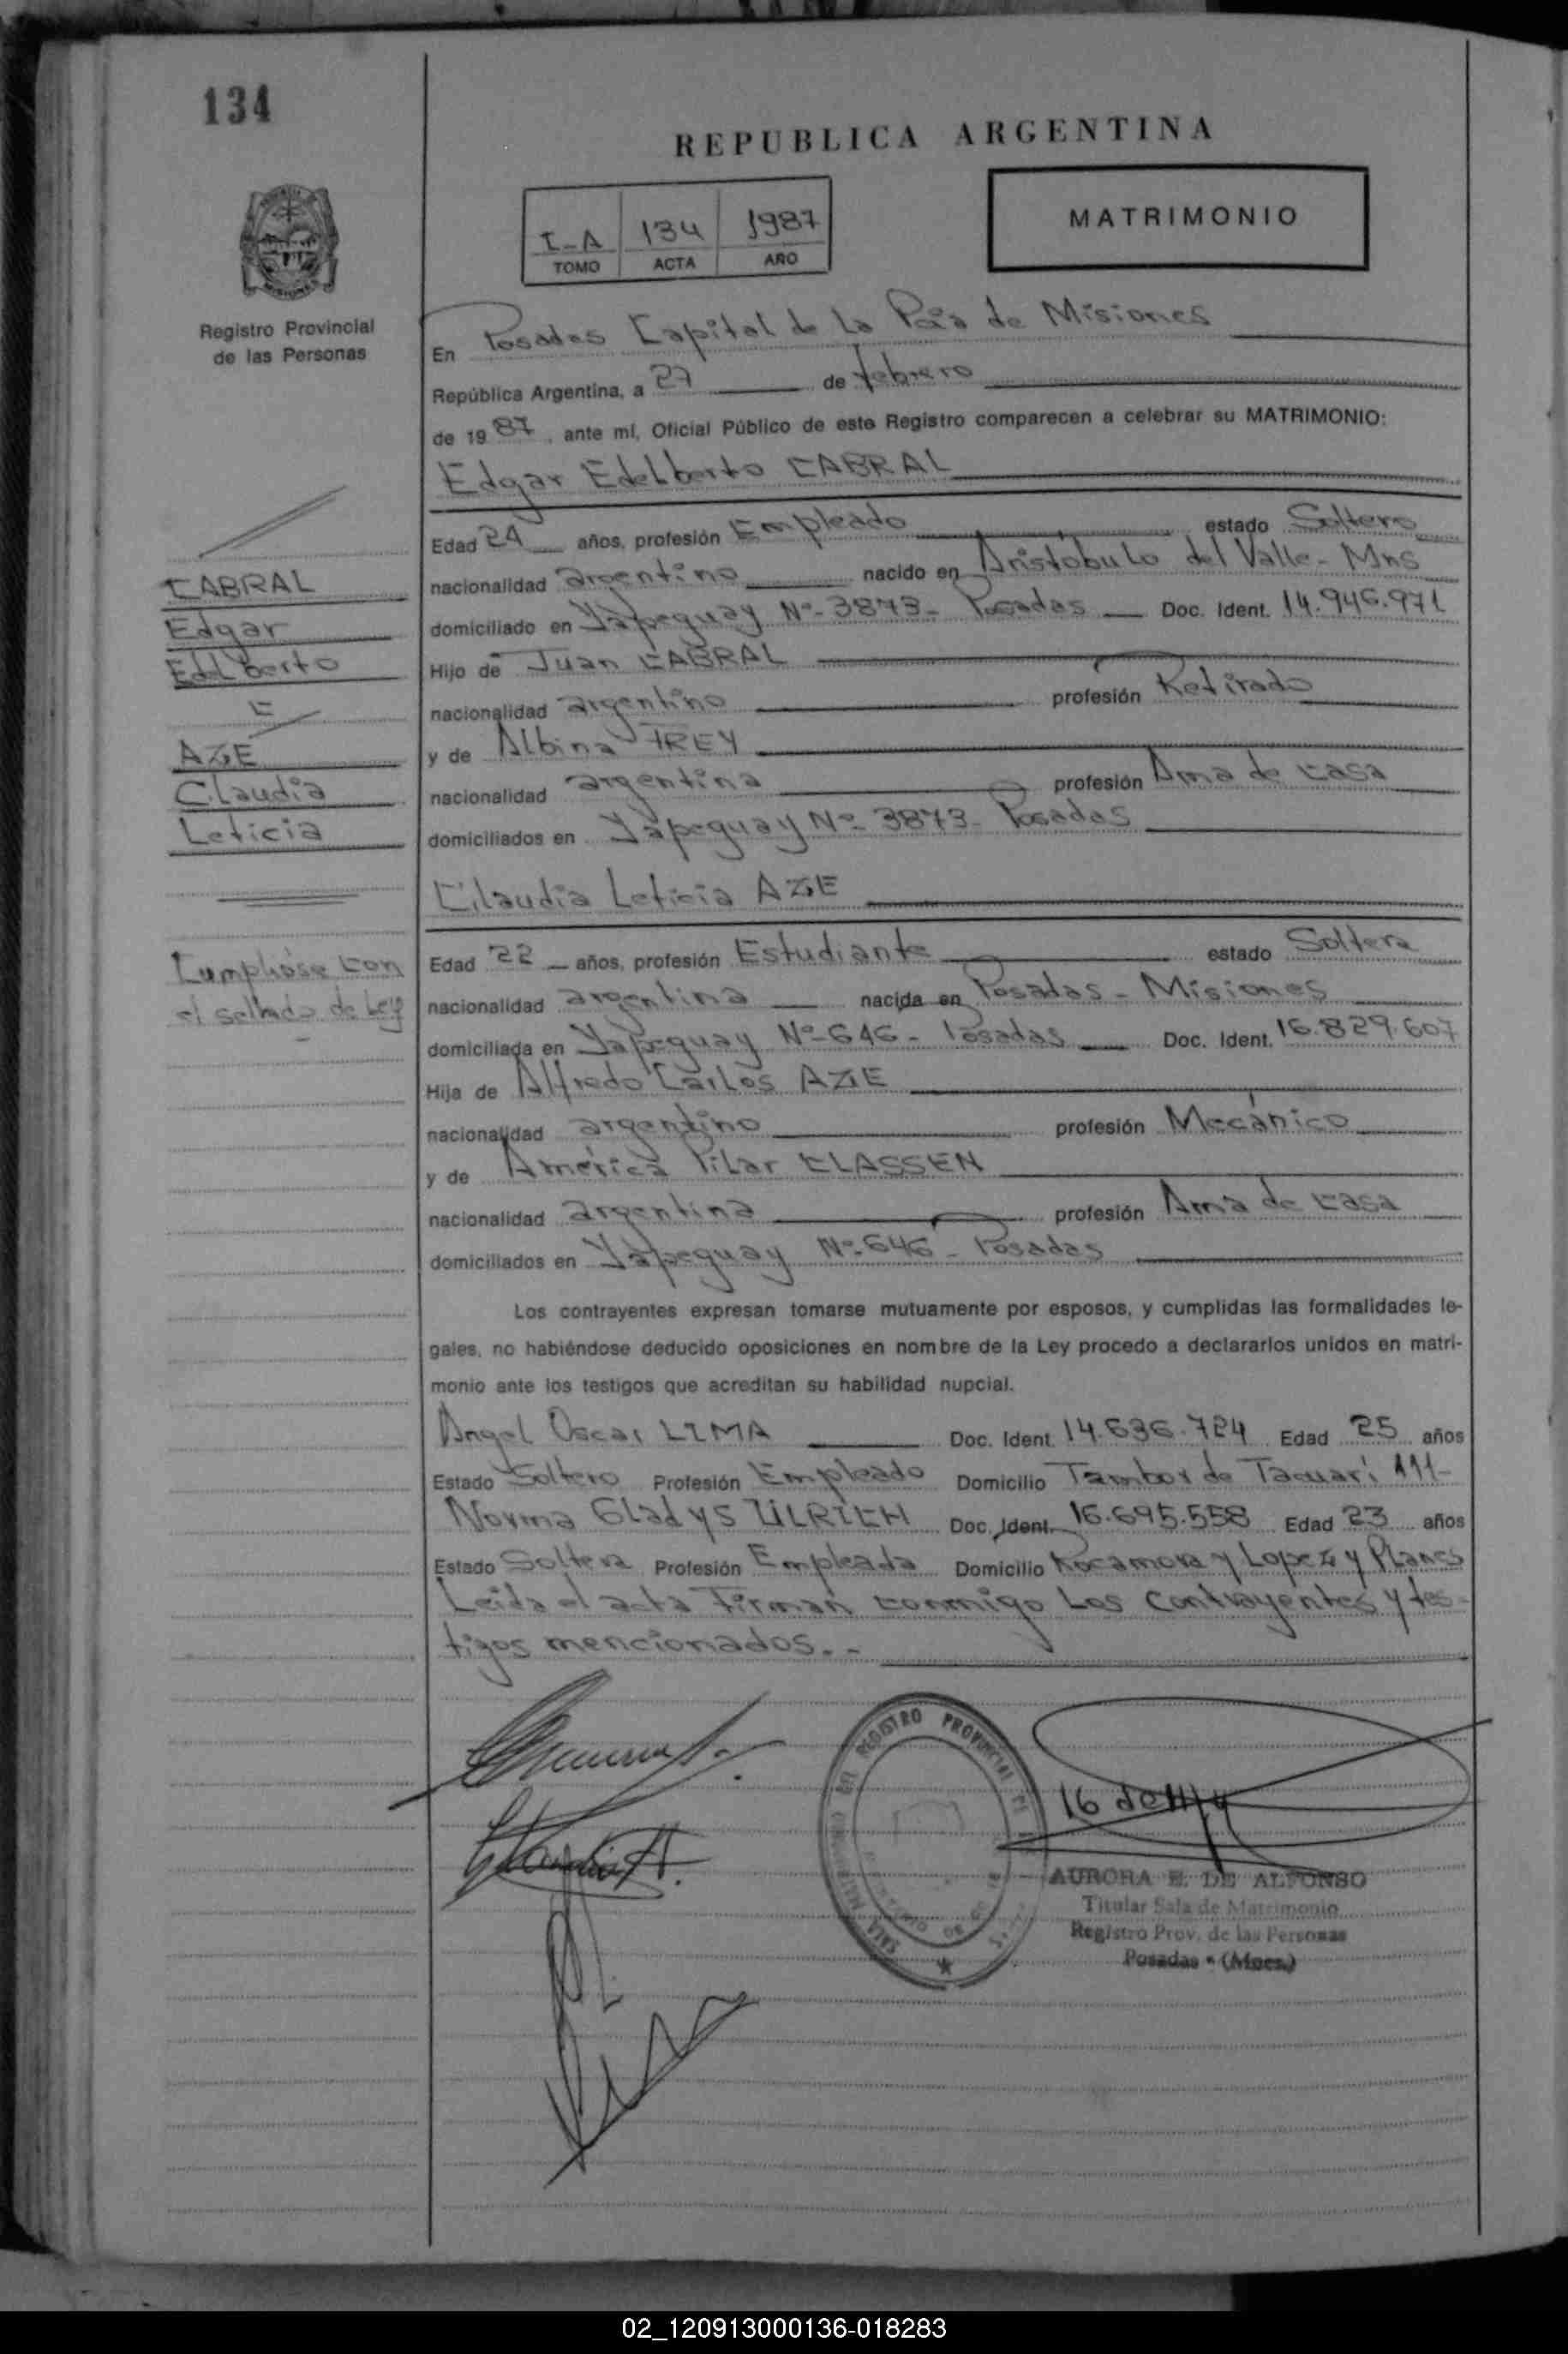 134
REPUBLICA ARGENTINA
I-A 134 1987
TOMO ACTA AÑO
MATRIMONIO
Registro Provincial
de las Personas
En Posadas Capital de la Pcia de Misiones
República Argentina, a 27 de febrero
de 1987, ante mí, Oficial Público de este Registro comparecen a celebrar su MATRIMONIO:
Edgar Edelberto CABRAL
Edad 24 años, profesión Empleado estado Soltero
nacionalidad argentino nacido en Aristóbulo del Valle- Mns
domiciliado en Yapeguay Nº- 3873- Posadas Doc. Ident. 14.946.971
Hijo de Juan CABRAL
nacionalidad argentino profesión Retirado
y de Albina FREY
nacionalidad argentina profesión Ama de casa
domiciliados en Yapeguay Nº- 3873- Posadas
CABRAL
Edgar
Edelberto
C
AZE
Claudia
Leticia
Claudia Leticia AZE
Cumplióse con
el sellado de Ley
Edad 22 años, profesión Estudiante estado Soltera
nacionalidad argentina nacida en Posadas - Misiones
domiciliada en Yapeguay Nº-646- Posadas Doc. Ident. 16.829.607
Hija de Alfredo Carlos AZE
nacionalidad argentino profesión Mecánico
y de América Pilar CLASSEN
nacionalidad argentina profesión Ama de casa
domiciliados en Yapeguay Nº-646- Posadas
Los contrayentes expresan tomarse mutuamente por esposos, y cumplidas las formalidades le-
gales, no habiéndose deducido oposiciones en nombre de la Ley procedo a declararlos unidos en matri-
monio ante los testigos que acreditan su habilidad nupcial.
Angel Oscar LIMA Doc. Ident. 14.636.724 Edad 25 años
Estado Soltero Profesión Empleado Domicilio Tambor de Tacuarí 111-
Norma Gladys ULRICH Doc. Ident. 16.695.558 Edad 23 años
Estado Soltera Profesión Empleada Domicilio Rocamora y Lopez y Planes
Leida el acta Firman conmigo los contrayentes y tes-
tigos mencionados.-
REGISTRO PROVINCIAL
AURORA E. DE ALFONSO
Titular Sala de Matrimonio
Registro Prov. de las Personas
Posadas - (Mnes.)
02_120913000136-018283